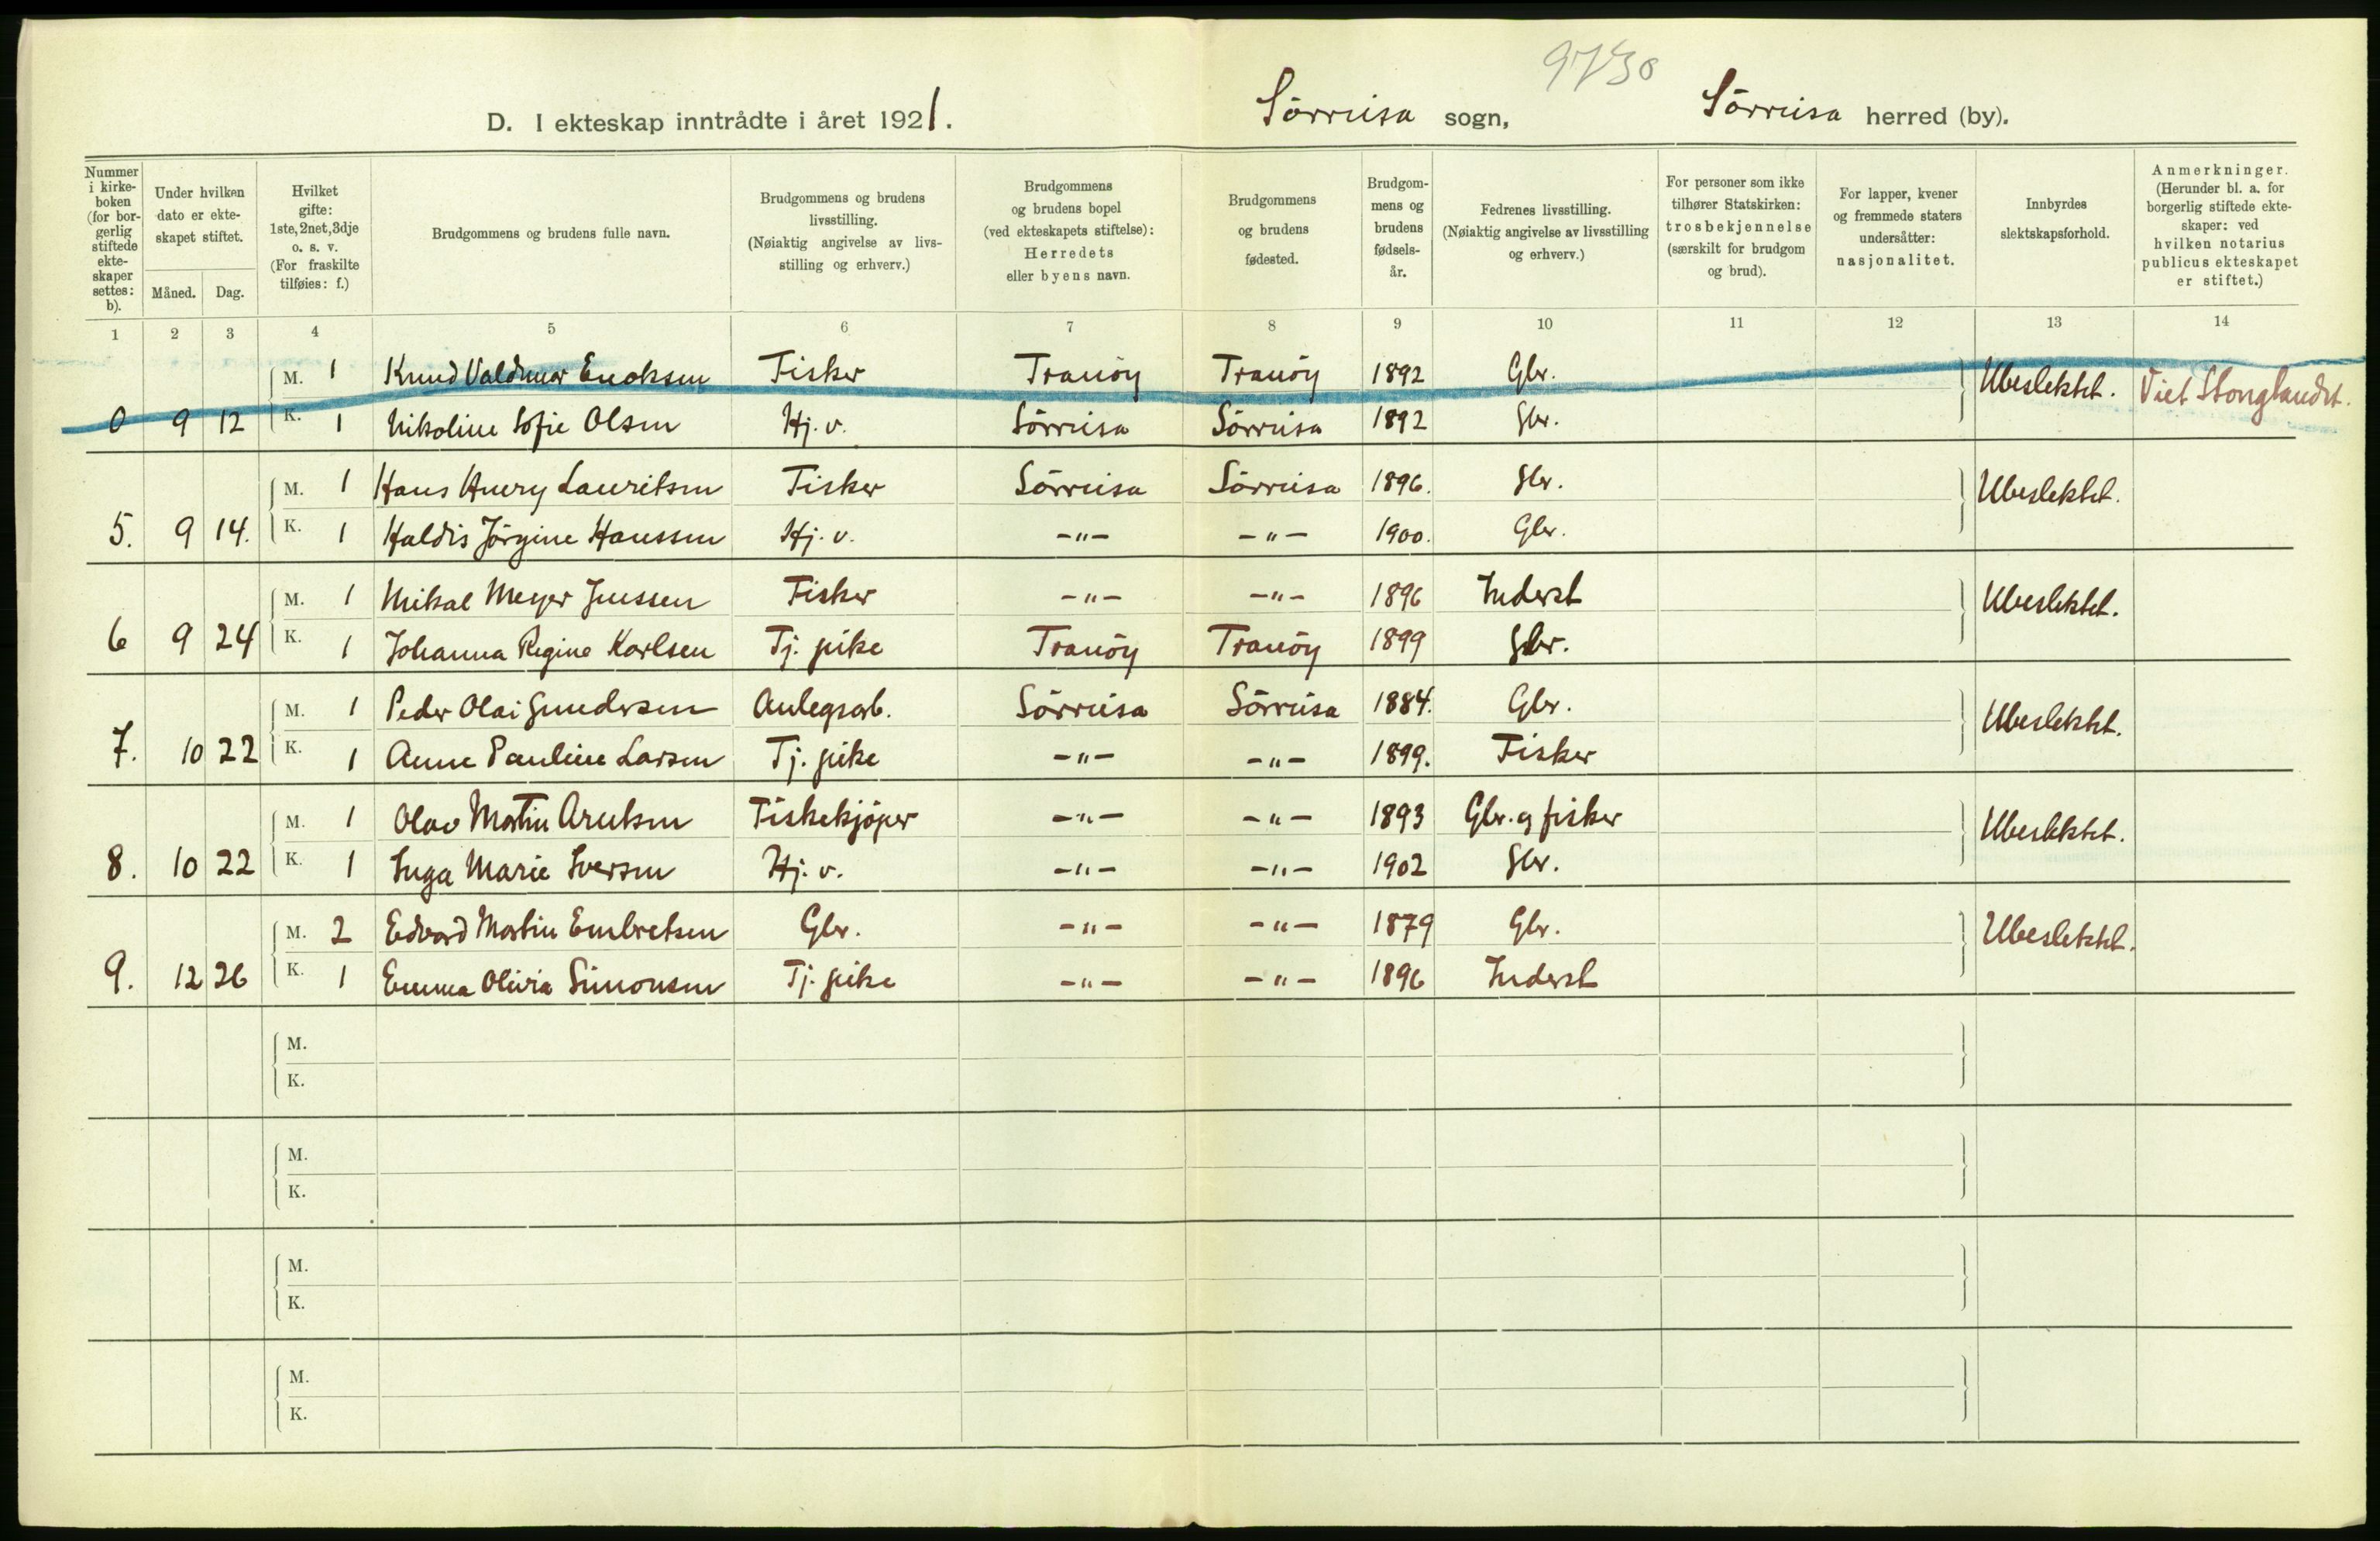 9730
D. I ekteskap inntrådte i året 1921. Sörreisa sogn, Sörreisa herred (by).
Nummer i kirke-boken (for bor-gerlig stiftede ekte-skaper settes: b).
Under hvilken dato er ekte-skapet stiftet.
Måned. Dag.
Hvilket gifte: 1ste, 2net, 3dje o. s. v. (For fraskilte tilføies: f.)
Brudgommens og brudens fulle navn.
Brudgommens og brudens livsstilling. (Nøiaktig angivelse av livs-stilling og erhverv.)
Brudgommens og brudens bopel (ved ekteskapets stiftelse): Herredets eller byens navn.
Brudgommens og brudens fødested.
Brudgom-mens og brudens fødsels-år.
Fedrenes livsstilling. (Nøiaktig angivelse av livsstilling og erhverv.)
For personer som ikke tilhører Statskirken: trosbekjennelse (særskilt for brudgom og brud).
For lapper, kvener og fremmede staters undersåtter: nasjonalitet.
Innbyrdes slektskapsforhold.
Anmerkninger. (Herunder bl. a. for borgerlig stiftede ekte-skaper: ved hvilken notarius publicus ekteskapet er stiftet.)
1 2 3 4 5 6 7 8 9 10 11 12 13 14
M. 1 Knud Valdemar Enoksen Fisker Tranöy Tranöy 1892 Gbr. Ubeslektet. Viet Stonglandet.
0 9 12 K. 1 Nikoline Sofie Olsen Hj. v. Sörreisa Sörreisa 1892 Gbr.
M. 1 Hans Henry Lauritsen Fisker Sörreisa Sörreisa 1896. Gbr. Ubeslektet.
5. 9 14. K. 1 Haldis Jörgine Hanssen Hj. v. -"- -"- 1900. Gbr.
M. 1 Mikal Meyer Jenssen Fisker -"- -"- 1896 Inderst Ubeslektet.
6 9 24 K. 1 Johanna Regine Karlsen Tj. pike Tranöy Tranöy 1899 Gbr.
M. 1 Peder Olai Gundersen Anlegsarb. Sörreisa Sörreisa 1884. Gbr. Ubeslektet.
7. 10 22 K. 1 Anne Pauline Larsen Tj. pike -"- -"- 1899. Fisker
M. 1 Olav Martin Arntsen Fiskekjöper -"- -"- 1893 Gbr. og fisker Ubeslektet.
8. 10 22 K. 1 Inga Marie Iversen Hj. v. -"- -"- 1902 Gbr.
M. 2 Edvard Martin Embretsen Gbr. -"- -"- 1879 Gbr. Ubeslektet.
9. 12 26 K. 1 Emma Olivia Simonsen Tj. pike -"- -"- 1896 Inderst
M.
K.
M.
K.
M.
K.
M.
K.